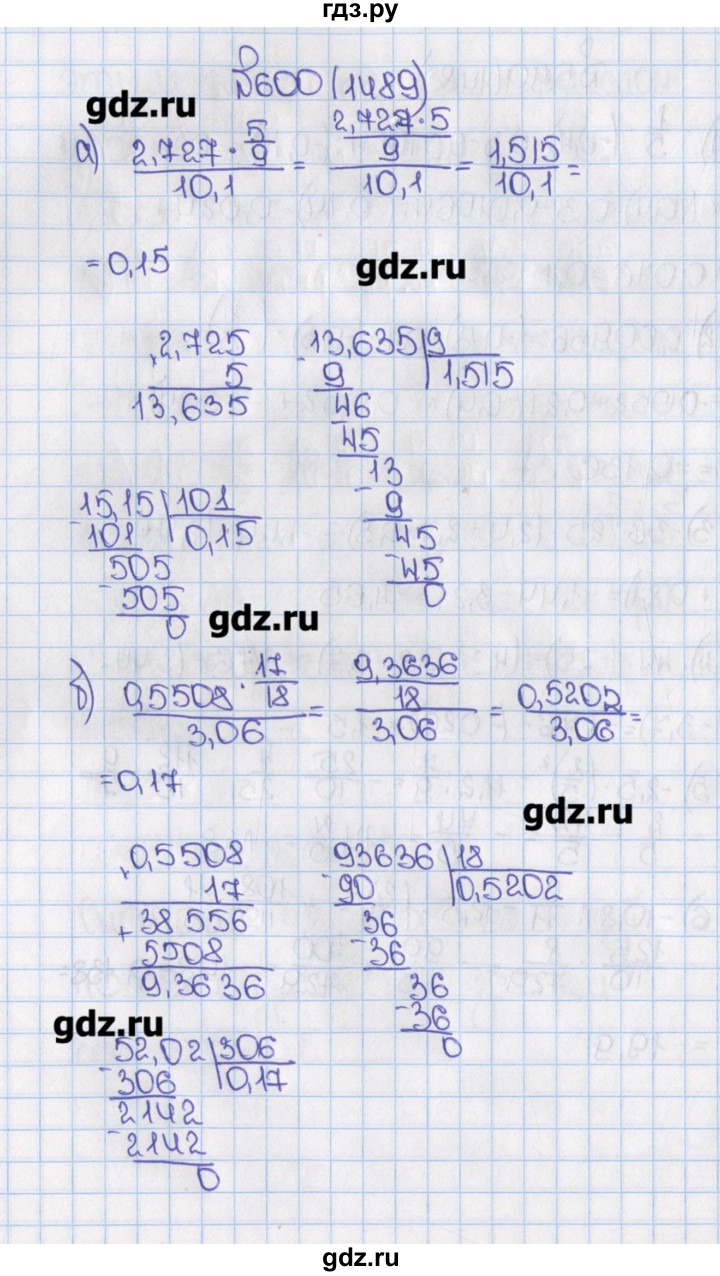 гдз.ру
№600 (1489)
gdz.ru
а) 2,727 · 5/9 / 10,1 = 2,727·5 / 9 / 10,1 = 1,515 / 10,1 =
= 0,15
gdz.ru
2,725
5
13,635
13,635 | 9
9 | 1,515
46
45
13
9
45
45
0
15,15 | 101
101 | 0,15
505
505
0
gdz.ru
б) 0,5508 · 17/18 / 3,06 = 9,3636 / 18 / 3,06 = 0,5202 / 3,06 =
= 0,17
gdz.ru
0,5508
17
+ 38 556
5508
9,3636
93636 | 18
90 | 0,5202
36
36
36
36
0
gdz.ru
52,02 | 306
306 | 0,17
2142
2142
0
gdz.ru